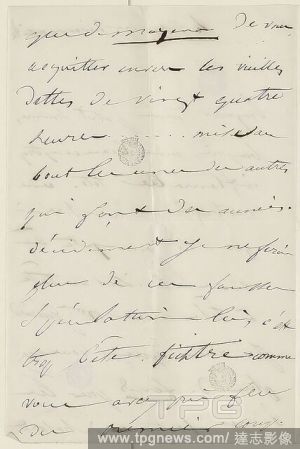 que de moyens de vous
acquitter envers les vieilles
dettes de vingt quatre
heure ........ mises au
bout les unes des autres
qui font des années.
décidément je ne ferai
plus de ces fausses
spéculations là, c'est
trop bête. fichtre comme
vous avez pris feu
du premier coup.
TPG
www.tpgnews.com/達志影像